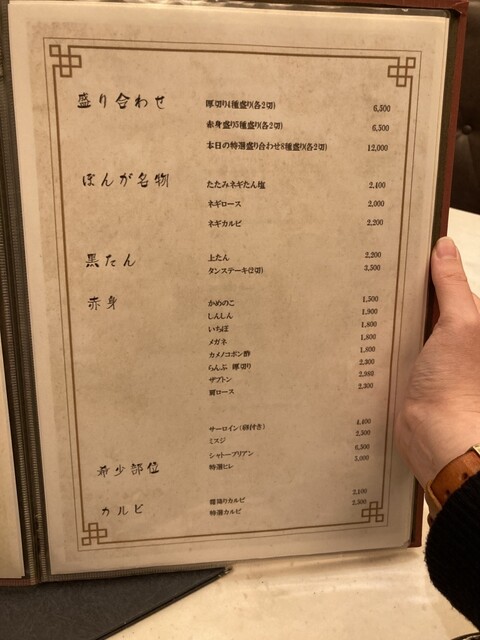 盛り合わせ
厚切り4種盛り(各2切) 6,500
赤身盛り5種盛り(各2切) 6,500
本日の特選盛り合わせ8種盛り(各2切) 12,000
ぼんが名物
たたみネギたん塩 2,400
ネギロース 2,000
ネギカルビ 2,200
黒たん
上たん 2,200
タンステーキ(2切) 3,500
赤身
かめのこ 1,500
しんしん 1,900
いちぼ 1,800
メガネ 1,800
カメノコポン酢 1,600
らんぷ 厚切り 2,300
ザブトン 2,980
肩ロース 2,300
希少部位
サーロイン(卵付き) 4,400
ミスジ 2,500
シャトーブリアン 6,500
特選ヒレ 5,000
カルビ
霜降りカルビ
特選カルビ